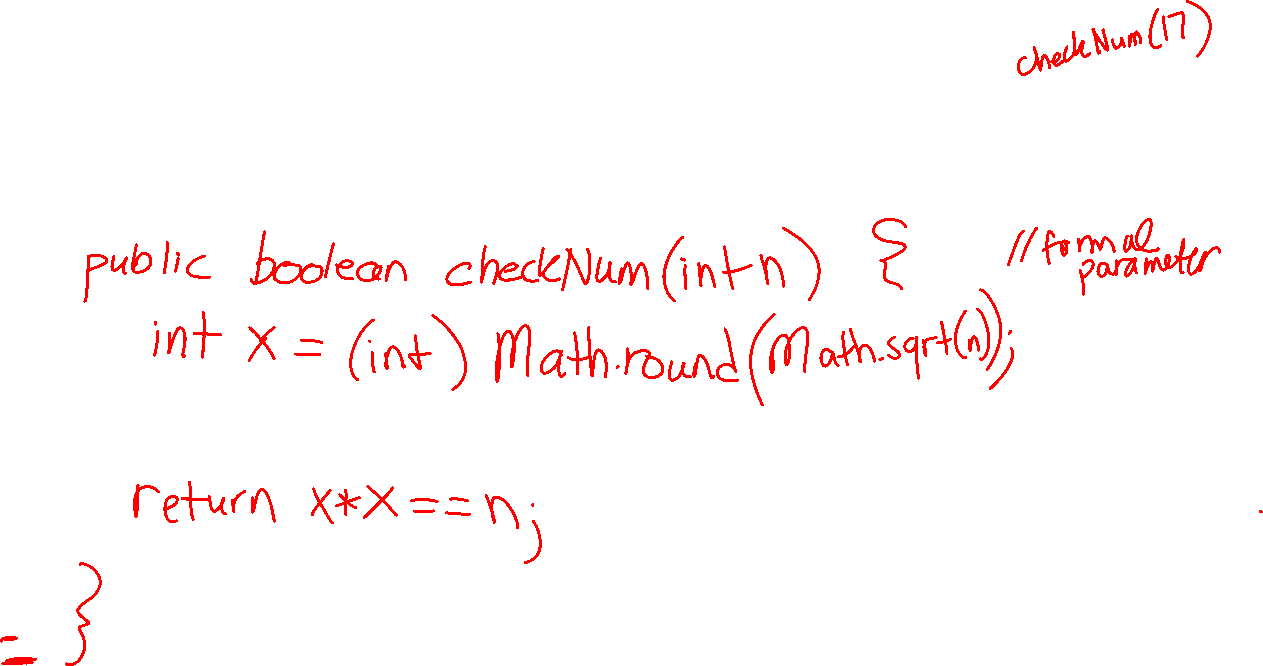 checkNum(17)
public boolean checkNum(int n) { //formal parameter
int x = (int) Math.round(Math.sqrt(n));
return x*x==n;
}